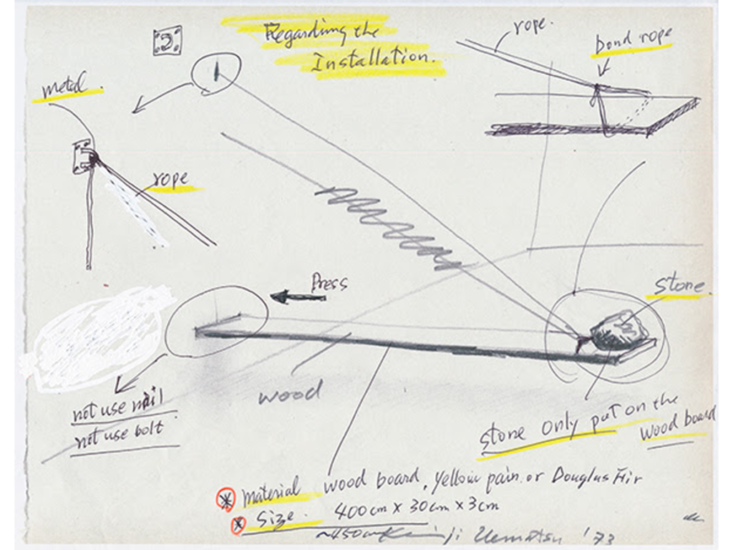 Regarding the
Installation.
rope.
bond rope
metal.
rope
Press
stone.
wood
not use nail
not use bolt.
stone only put on the
wood board
* Material wood board, yellow pain. or Douglus Fir
* Size. 400cm x 30cm x 3cm
~450cm
Uematsu '73